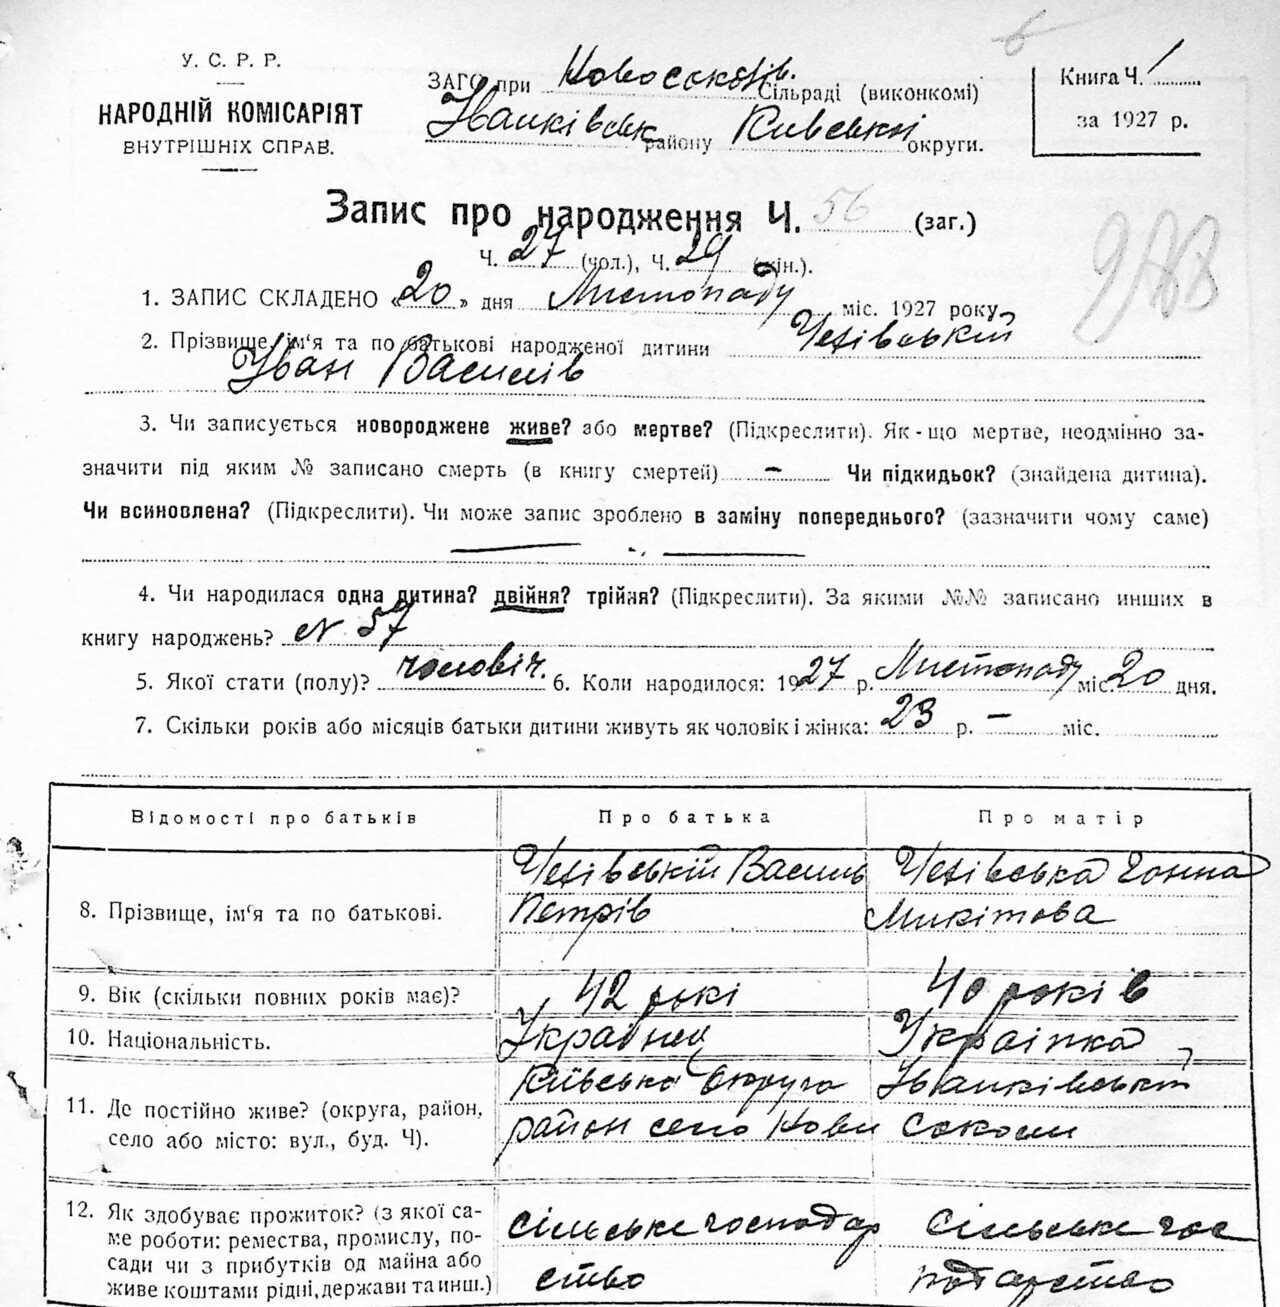 У. С. Р. Р.
НАРОДНІЙ КОМІСАРІЯТ
ВНУТРІШНІХ СПРАВ.
ЗАГС при Новосокол. Сільраді (виконкомі)
Іванківськ району Київської округи.
Книга Ч. 1
за 1927 р.
Запис про народження Ч. 56 (заг.)
Ч. 27 (чол.), Ч. 29 (жін.).
1. ЗАПИС СКЛАДЕНО «20» дня Листопаду міс. 1927 року
2. Прізвище, ім'я та по батькові народженої дитини
Іван Василів
3. Чи записується новороджене живе? або мертве? (Підкреслити). Як-що мертве, неодмінно за-
значити під яким № записано смерть (в книгу смертей) — Чи підкидьок? (знайдена дитина).
Чи всиновлена? (Підкреслити). Чи може запис зроблено в заміну попереднього? (зазначити чому саме)
4. Чи народилася одна дитина? двійня? трійня? (Підкреслити). За якими №№ записано инших в
книгу народжень? № 57
5. Якої стати (полу)? чоловіч. 6. Коли народилося: 1927 р. Листопаду міс. 20 дня.
7. Скільки років або місяців батьки дитини живуть як чоловік і жінка: 23 р. — міс.
Відомості про батьків Про батька Про матір
8. Прізвище, ім'я та по батькові. Василь Петрів Ганна Микітова
9. Вік (скільки повних років має)? 42 рокі 40 років
10. Національність. Українец Украінка
11. Де постійно живе? (округа, район, Київська округа Іванківський
село або місто: вул., буд. Ч). район село Нови Соколи
12. Як здобуває прожиток? (з якої са-
ме роботи: ремества, промислу, по-
сади чи з прибутків од майна або
живе коштами рідні, держави та инш.)
сільське господар
ство
Сільське гос
подарство